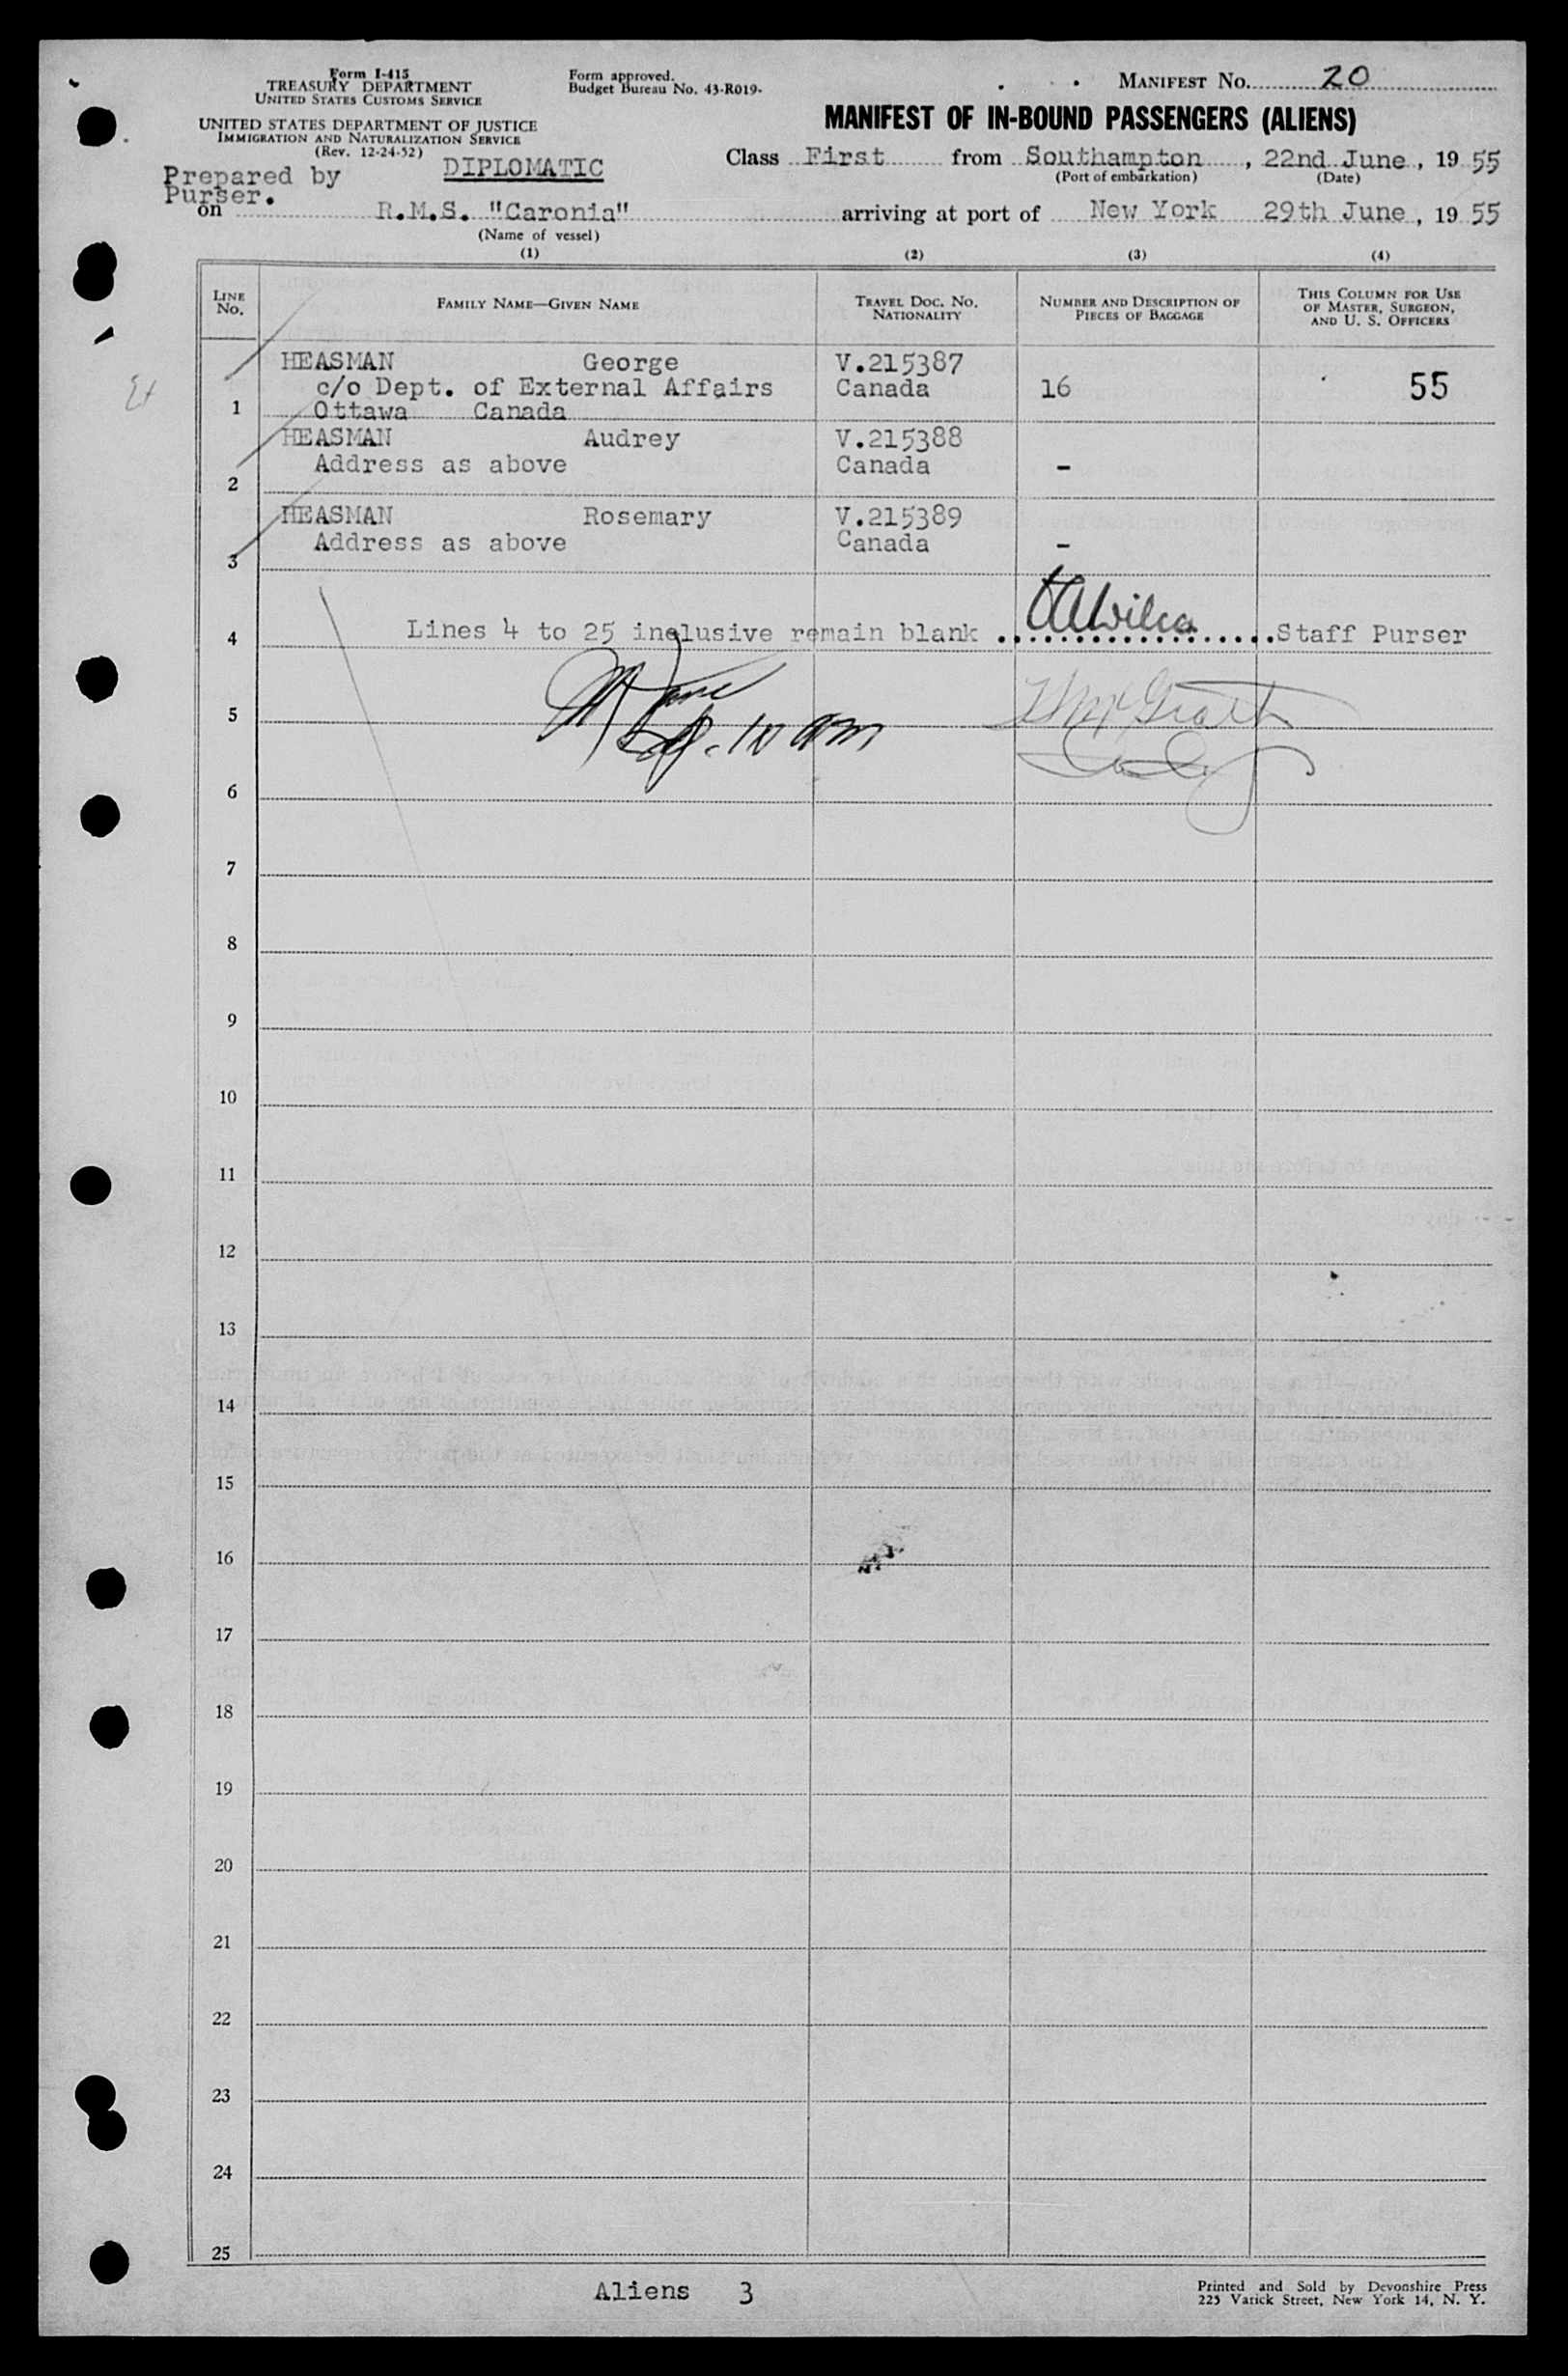 Form I-415
TREASURY DEPARTMENT
UNITED STATES CUSTOMS SERVICE
UNITED STATES DEPARTMENT OF JUSTICE
IMMIGRATION AND NATURALIZATION SERVICE
(Rev. 12-24-52)
Form approved.
Budget Bureau No. 43-R019-
MANIFEST No. 20
MANIFEST OF IN-BOUND PASSENGERS (ALIENS)
Class First from Southampton, 22nd June, 19 55
(Port of embarkation) (Date)
Prepared by DIPLOMATIC
Purser.
on R.M.S. "Caronia" arriving at port of New York 29th June, 19 55
(Name of vessel)
(1) (2) (3) (4)
LINE No. FAMILY NAME—GIVEN NAME TRAVEL DOC. NO. NATIONALITY NUMBER AND DESCRIPTION OF PIECES OF BAGGAGE THIS COLUMN FOR USE OF MASTER, SURGEON, AND U. S. OFFICERS
HEASMAN George V.215387
c/o Dept. of External Affairs Canada 16 55
1 Ottawa Canada
HEASMAN Audrey V.215388
Address as above Canada -
2
HEASMAN Rosemary V.215389
Address as above Canada -
3
4 Lines 4 to 25 inclusive remain blank ..................Staff Purser
5
6
7
8
9
10
11
12
13
14
15
16
17
18
19
20
21
22
23
24
25
Aliens 3
Printed and Sold by Devonshire Press
225 Varick Street, New York 14, N. Y.